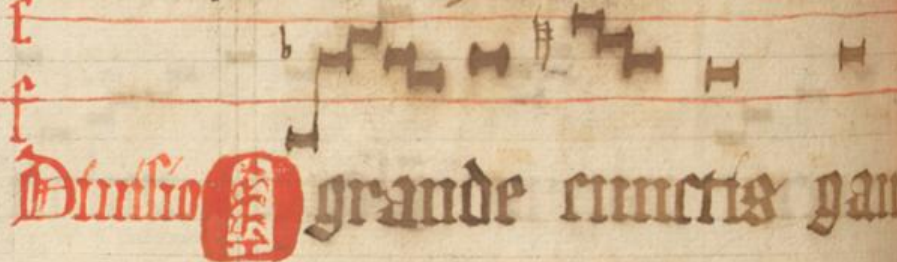 f
f
Diuisio O grande cunctis gau